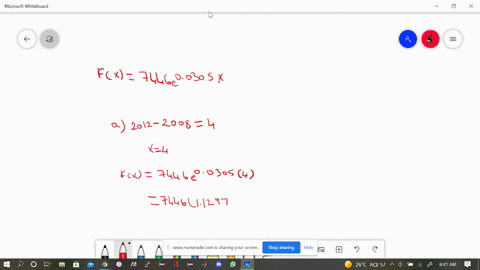 Microsoft Whiteboard
F(x) = 7446e^0.0305x
a) 2012-2008 = 4
x=4
F(x) = 7446e^0.0305(4)
=7446(1.1297
www.numerade.com is sharing your screen. Stop sharing Hide
26°C AQI 57 8:41 AM